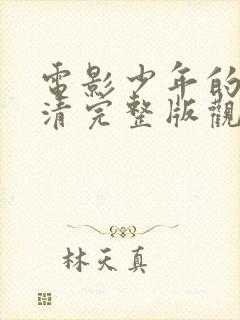 電影少年的
清完整版觀
林天真